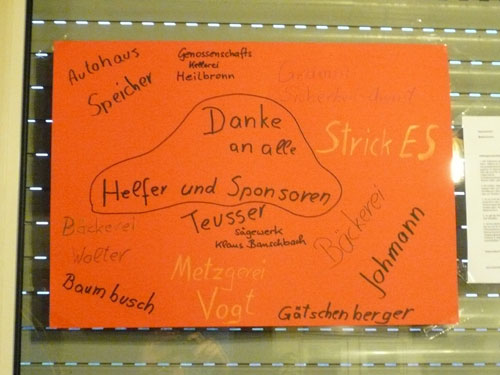 Autohaus
Speicher
Genossenschafts
Kellerei
Heilbronn
Strick ES
Danke
an alle
Helfer und Sponsoren
Teusser
Sägewerk
Klaus Bauschbach
Bäckerei
Wolter
Baumbusch
Metzgerei
Vogt
Bäckerei
Johmann
Götschenberger